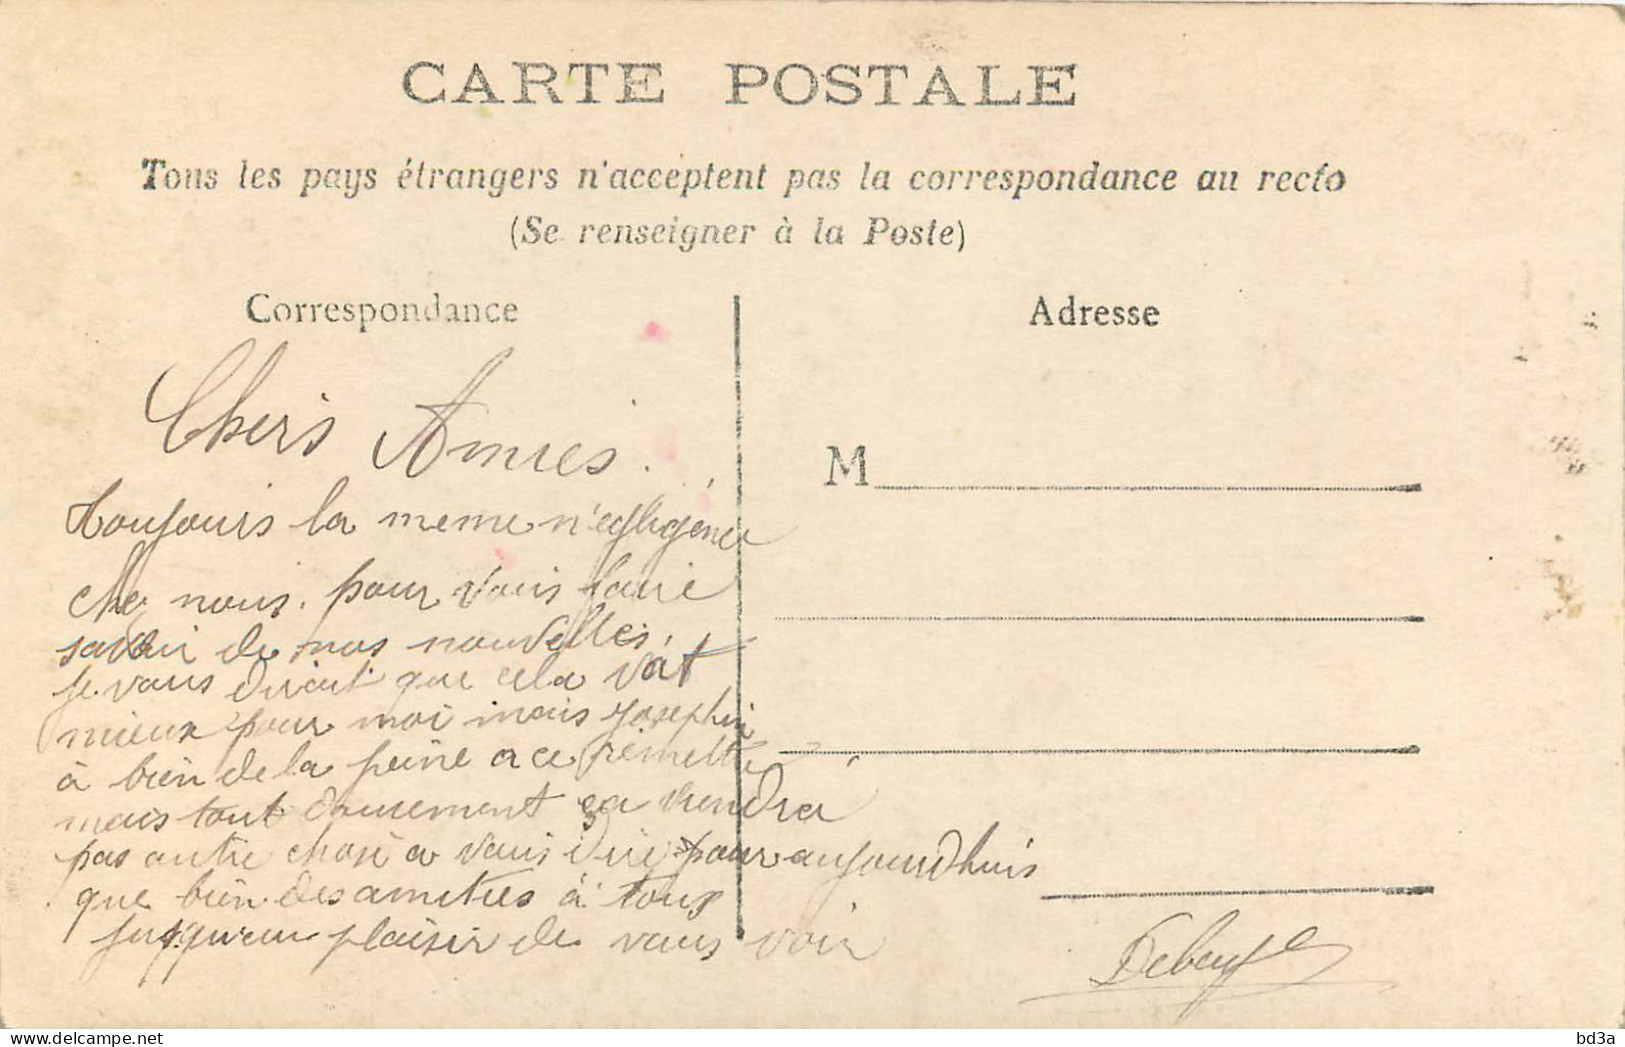 CARTE POSTALE
Tous les pays étrangers n'acceptent pas la correspondance au recto
(Se renseigner à la Poste)
Correspondance
Adresse
Chers Amies.
toujours la meme n'egligénce
chez nous. pour vous faire
savoir de nos nouvelles,
je vous dirait que cela vat
mieux pour moi mais Josephine
à bien de la peine a ce remettre
mais tout doucement ça viendra
pas autre chose a vous dire pour aujourdhuis
que bien des amities à tous
jusqu'au plaisir de vous voir
M
www.delcampe.net
bd3a